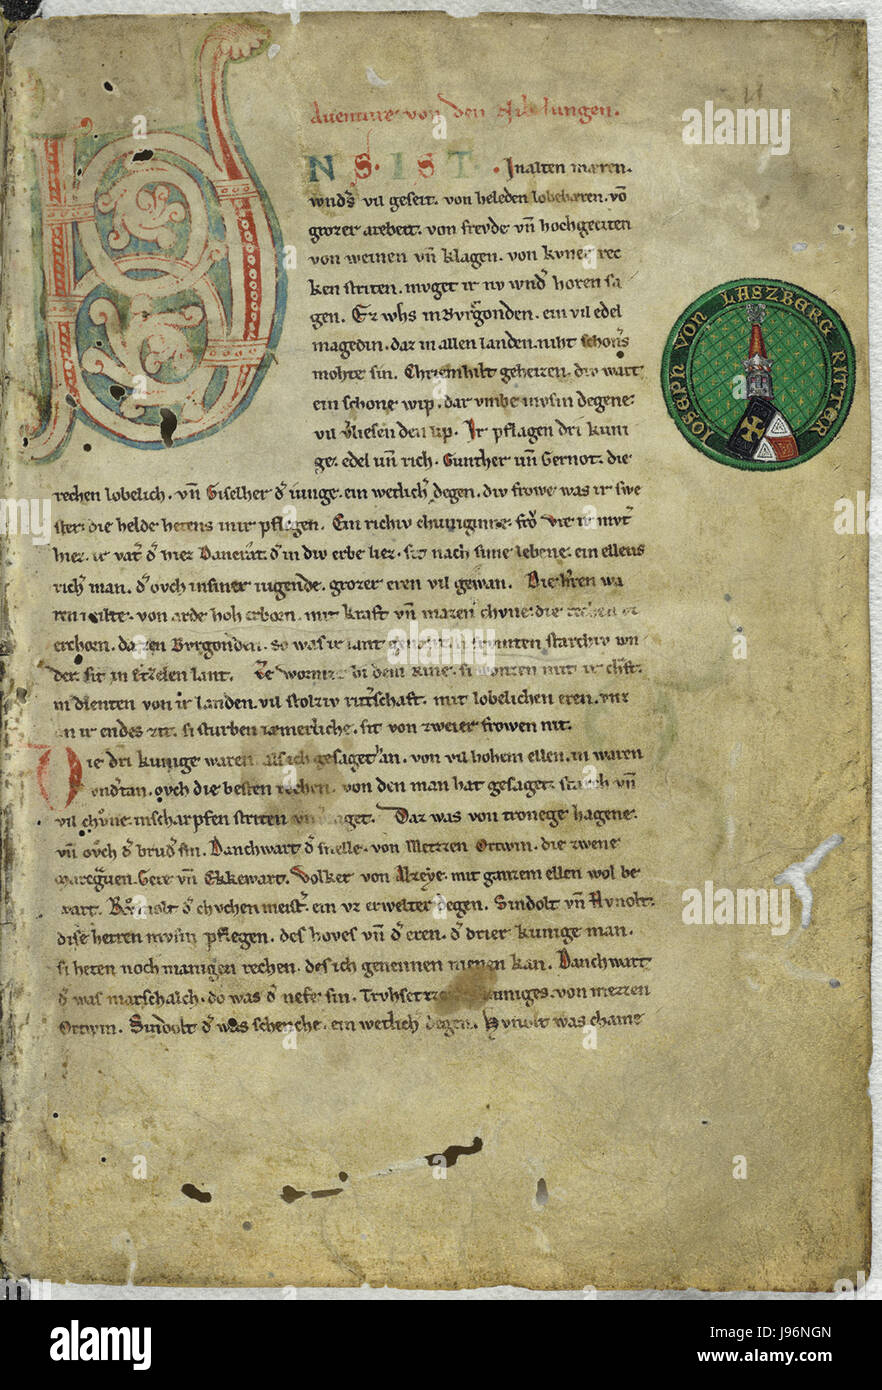 Aventure von den Nibelungen.
VNS. IST. In alten mæren.
wnđs vil geseit. von heleden lobebæren. võ
grozer arebeit. von frevde vñ hochgeciten
von weinen vñ klagen. von kvner rec
ken striten. mvget ir nv wnđ horen sa
gen. Ez whs in Bvrgonden. ein vil edel
magedin. daz in allen landen. niht schoners
mohte sin. Chriemhilt geheizen. div wart
ein schone wip. dar vmbe mvsin degene
vil vliesen den lip. Ir pflagen dri kuni
ge. edel vñ rich. Gunther vñ Gernot. die
rechen lobelich. vñ Giselher đ iunge. ein wetlich degen. div frowe was ir swe
ster. die helde hetens inir pflegen. Ein richiv chuniginne. frŏ Vte ir mvt
hiez. ir vat đ hiez Dancrat. đ in div erbe liez. sit nach sime lebene. ein ellens
rich man. đ ovch in siner iugende. grozer eren vil gewan. Die hren wa
ren milte. von arde hoh erborn. mit kraft vñ mazen chvne. die rechen
erchorn. dazen Bvrgonden. so was ir lant genant. si frvmten starchiv wn
der. sit in Etzelen lant. Ze Wormze bi dem Rine. si wonten mit ir chraft.
in dienten von ir landen. vil stolziv ritschaft. mit lobelichen eren. vnz
an ir endes zit. si sturben iæmerliche. sit von zweier frowen nit.
Die dri kunige waren. als ich gesaget han. von vil hohem ellen. in waren
vndtan. ovch die besten rechen. von den man hat gesaget. starch vñ
vil chvne. in scharpfen striten vnverzaget. Daz was von Tronege Hagene.
vñ ovch đ brudsin. Danchwart đ snelle. von Metzzen Ortwin. die zwene
maregven. Gere vñ Ekkewart. Volker von Alzeye. mit ganzem ellen wol be
wart. Rvmolt đ chvchenmeist. ein vz erwelter degen. Sindolt vñ Hvnolt.
dise herren mvsin pflegen. des hoves vñ đ eren. đ drier kunige man.
si heten noch manigen rechen. des ich genennen nienen kan. Danchwart
đ was marschalch. do was đ nefe sin. Trvhsetze des kuniges. von Metzzen
Ortwin. Sindolt đ was schenche. ein wetlich degen. Hvnolt was chame
IOSEPH VON LASZBERG RITTER
alamy
Image ID: J96NGN
www.alamy.com